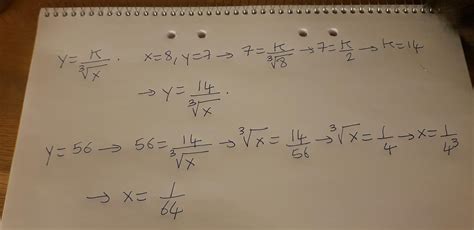 y = K/∛x . x=8, y=7 → 7 = K/∛8 → 7 = K/2 → K=14
→ y = 14/∛x .
y=56 → 56 = 14/∛x → ∛x = 14/56 → ∛x = 1/4 → x = 1/4³
→ x = 1/64